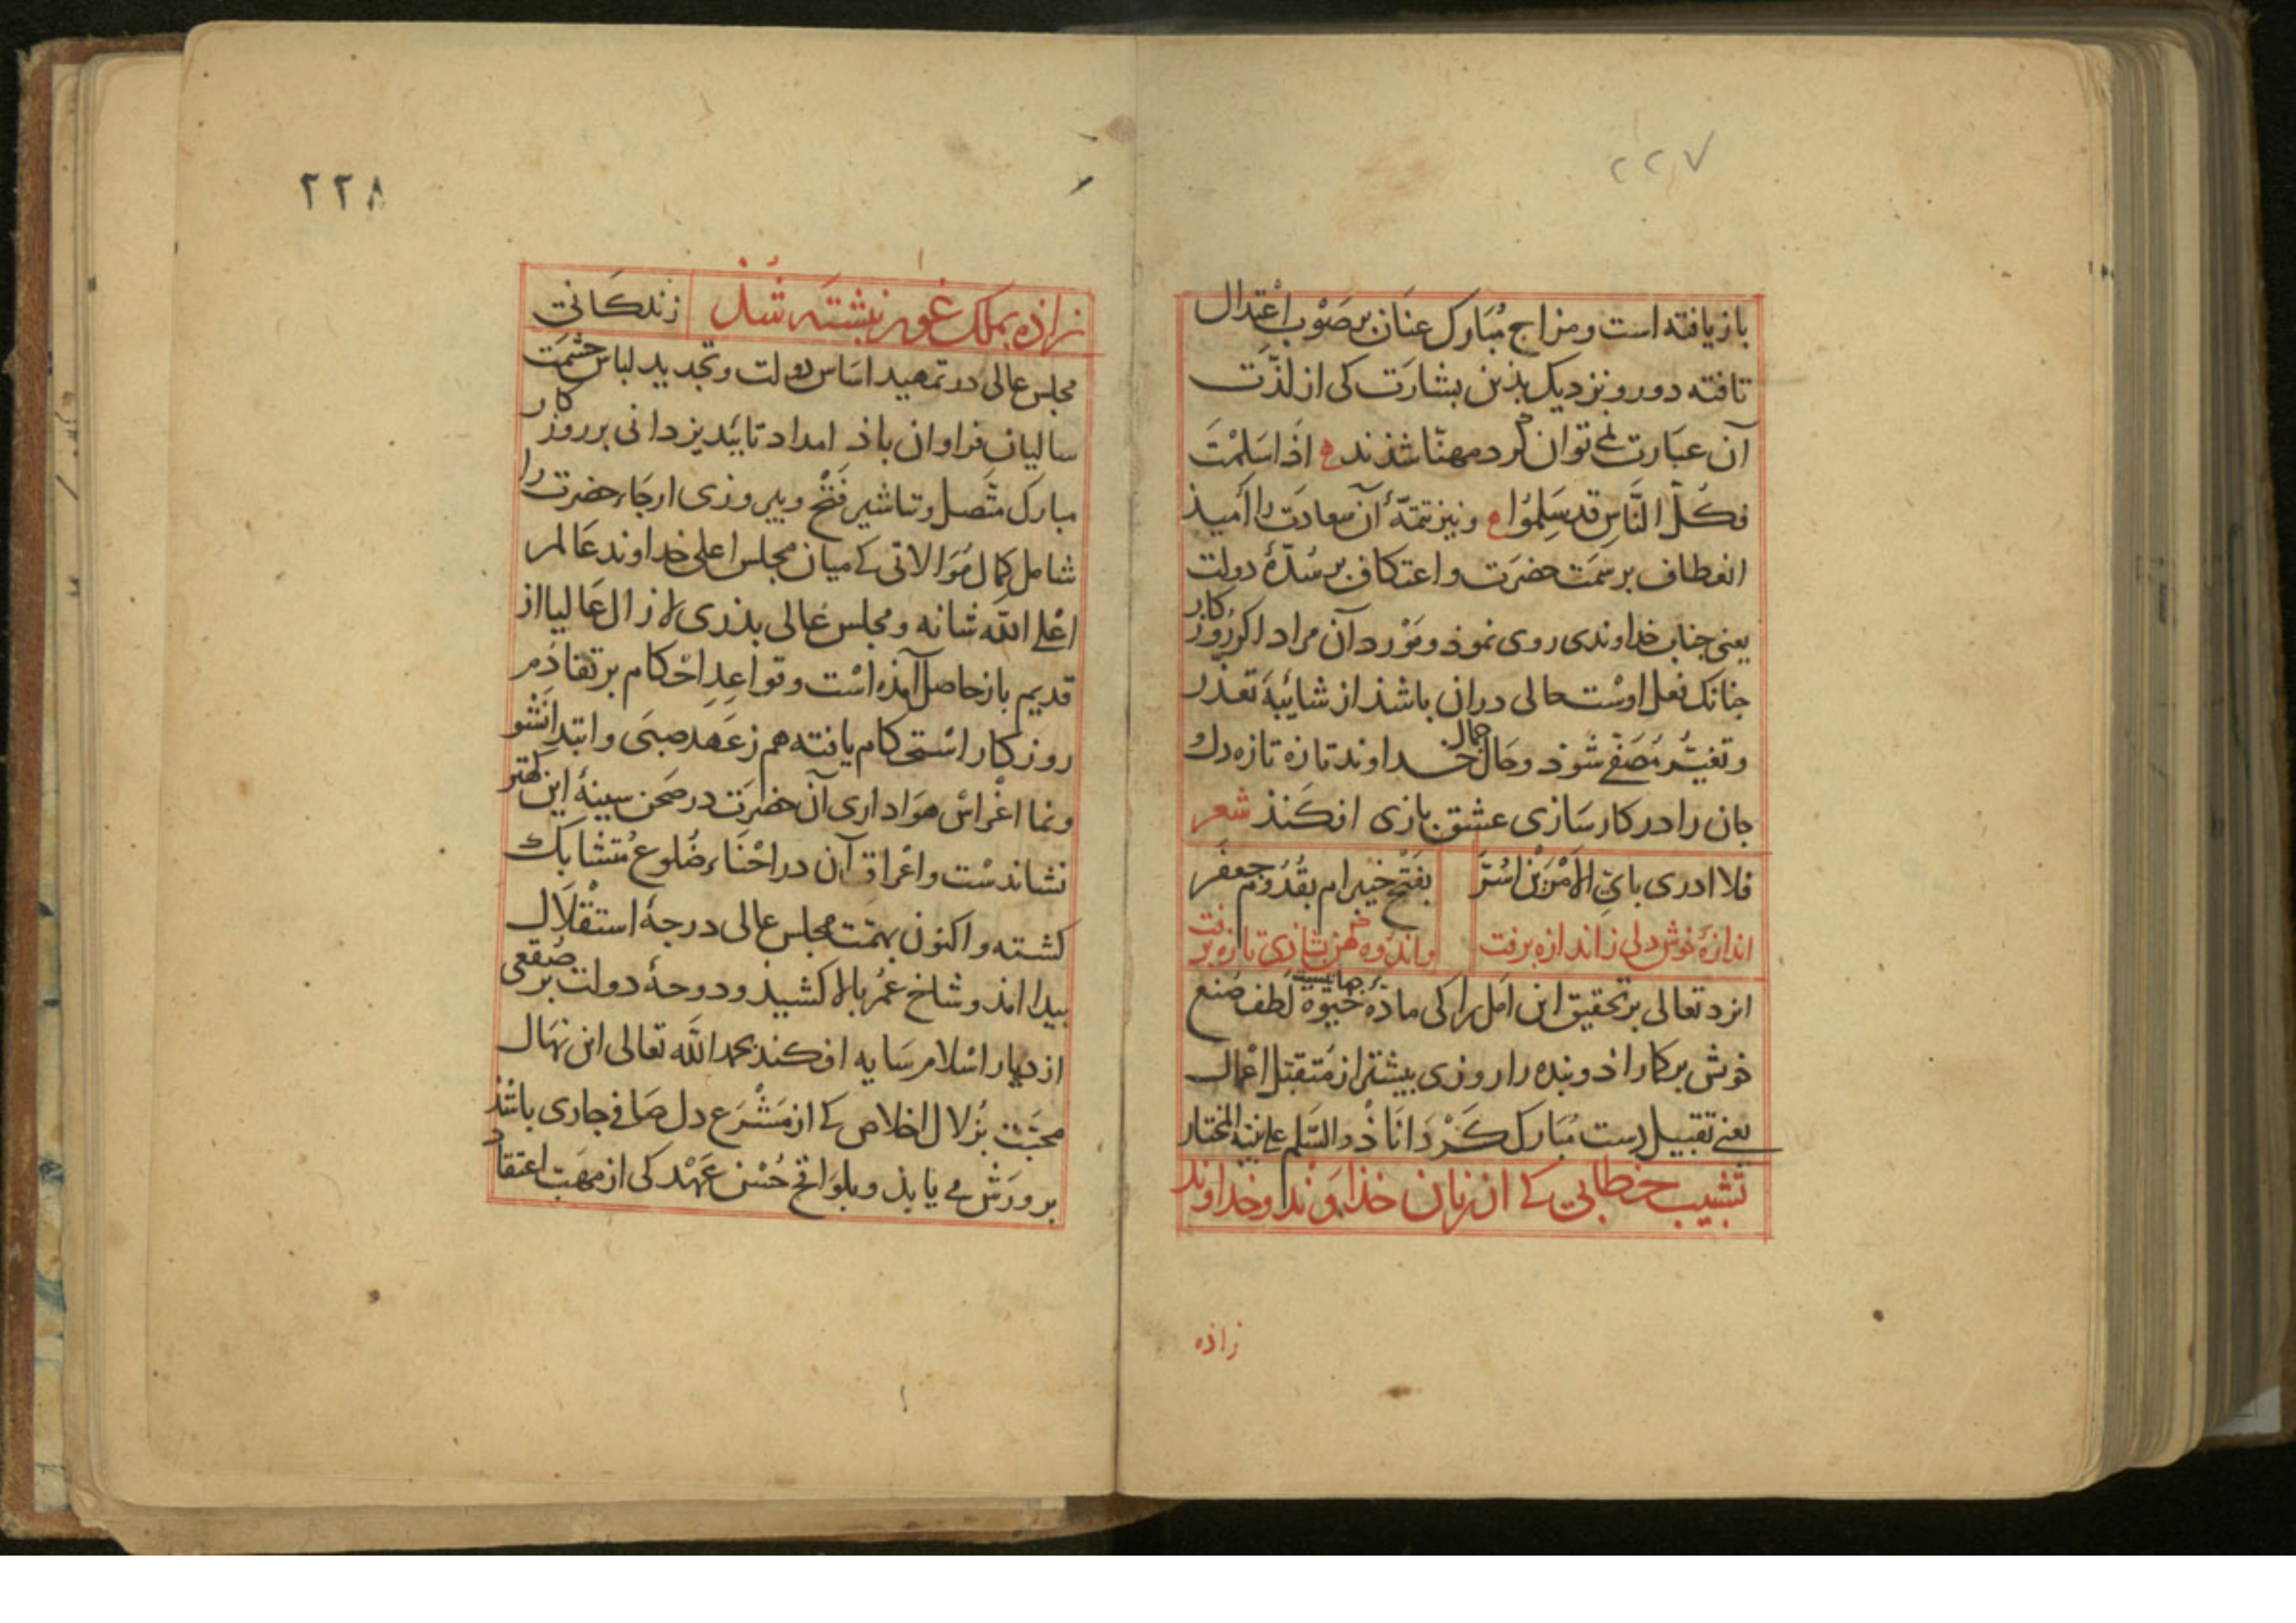 ۲۲۷
باز یافته است و مزاج مُبَارک عنَان بر صَوْب اعْتِدال
تافته دور و نزدیک بذین بشارَت کی از لذّت
آن عبَارت نمی توان کرد مهنّا شذند ه اذَا سَلِمْتَ
فکُلّ النَّاسِ قد سَلِمُوا ه و نیز تتمّهٔ آن سعادَت را اُمیذ
انعطاف بر سَمت حضرَت و اعتکاف بر سُدّهٔ دولت
یعنی جناب خداوندی روی نموذ و مَوْرد آن مراد اکر روزکار
جنانک فعل اوست حالی در ان باشذ از شایبَهٔ تعذر
و تغیّر مُصَفّی شوذ و جمال حال خداوند تازه تازه دل و
جان را در کار سَازی عشق بازی افکنذ شعر
فلا ادری بایّ الاَمْرَیْن اسُرَّ
بفَتْح خیبر ام بقُدُوم جعفَر
اندازهٔ خوش دلی ز اندازه برفت
و اندوه کهن بشاذی تازه برفت
ایزد تعالی بر تحقیق این اَمل را کی مادّهٔ حیوة بر جایست لطف صُنع
خوش برکاراذ و بنده را روزی بیشتر از مُتقبّل اعمال
یعنی تقبیل دست مبَارک کرداناذ و السّلم علی نبیّه المختار
تشبیب خطابی کی از زبان خذاوَند و خداوند
زاذه
۲۲۸
زاذه بملک غور نبشته شذ
زندکانی
مجلس عالی در تمهید اسَاس دولت و تجدید لباس حشمَت
سالیان فراوان باذ امداد تایید یزدانی بر روزکار
مبارک متّصل و تباشیر فَتْح و بیروزی ارجَاء حضرت را
شامل کمال مُوَالاتی کی میان مجلس اعلی خداوند عَالم
اعْلی اللّه شانه و مجلس عَالی بذری لا زال عَالیا از
قدیم باز حاصل آمذه است و قواعِدِ احْکام بر تقاذم
روزکار اسْتحکام یافته هم ز عَهْد صبَی و ابتدا نشو
و نما اغْراسْ هوَاداری آن حضرَت در صَحن سینهٔ این کهتر
نشاندسْت و اعْراق آن در احْنَاء ضُلوع مُتشابک
کشته و اکنون بهمّت مجلس عالی درجهٔ استقْلَال
بیدا امذ و شاخ عُمر بالا کشیذ و دوحهٔ دولت بر صُقعی
از دیار اسْلام سَایه افکند بحمد اللّه تعالی این نهَال
محبّت بزُلال اخلاص کی از مَشْرَع دل صَافی جاری باشذ
برورَش می یابذ و بلوَاقح حُسْن عَهْد کی از مهَبّ اعتقاد